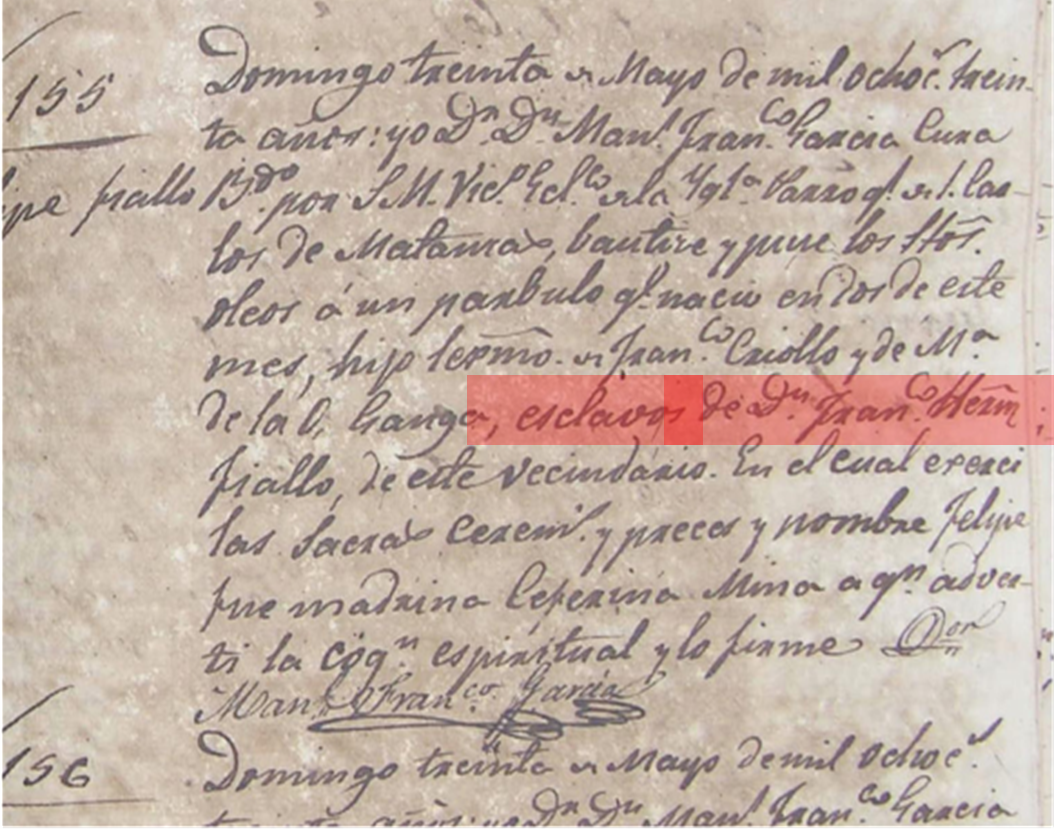 155
Domingo treinta de Mayo de mil ochoc.s trein-
ta años: yo Dn. Dn. Man.l Fran.co Garcia Cura
ipe fiallo
B.do por S.M. Vic.o Ecl.co de la Ygl.a Parroq.l de S. Car-
los de Matanzas, bautize y puse los Stos.
oleos á un parbulo q.e nacio en dos de este
mes, hijo lexmo. de Fran.co Criollo y de M.a
de la O. Ganga, esclavos de Dn. Fran.co Herm
fiallo, de este vecindario. En el cual exerci
las sacras cerem.s y preces y nombre Felipe
fue madrina Ceferina Mina a q.n adver-
ti la cogn. espiritual y lo firme Don
Man.l Fran.co Garcia
156
Domingo treinta de Mayo de mil ochoc.s
Dn. Dn. Man.l Fran.co Garcia